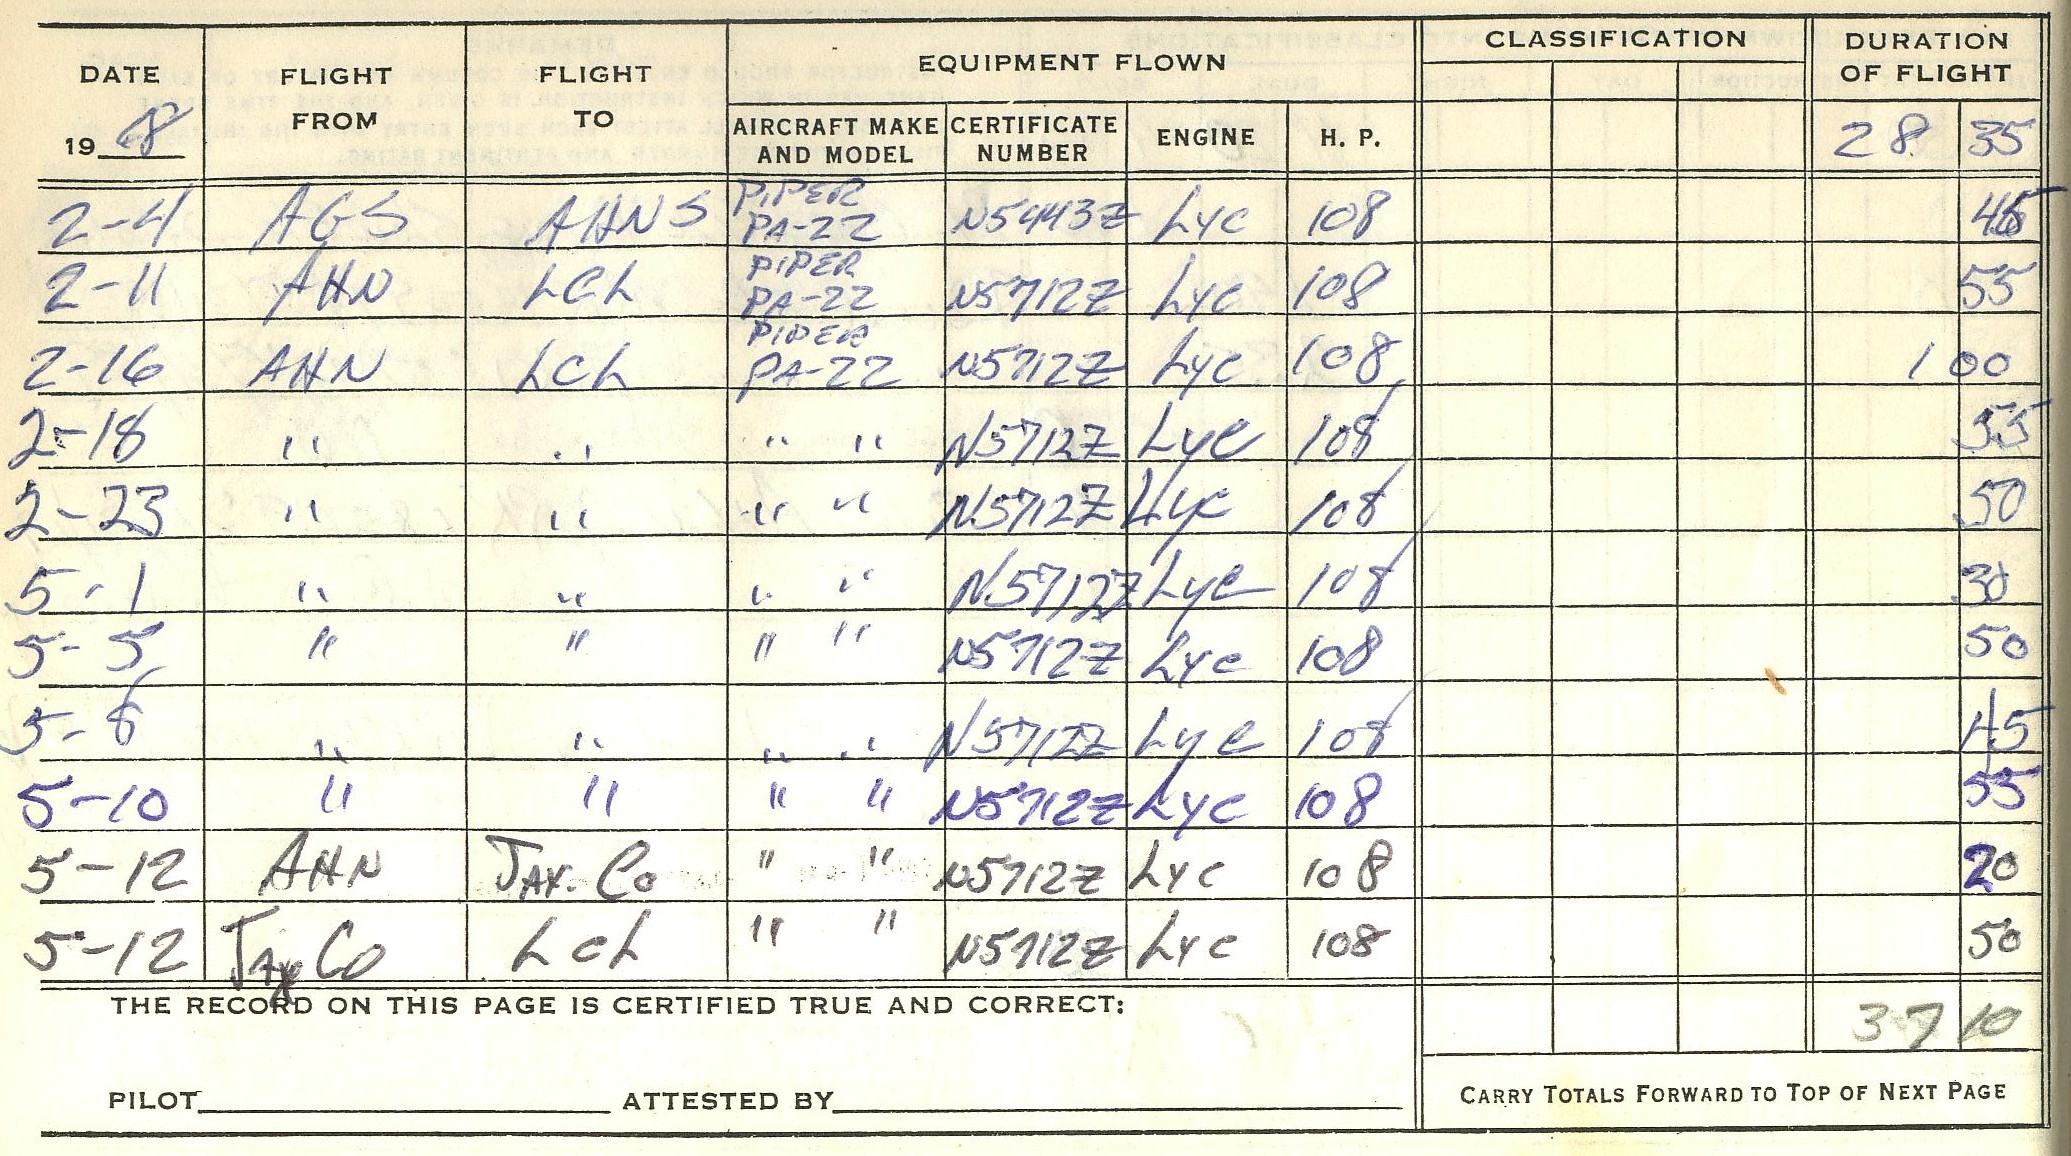 DATE FLIGHT FROM FLIGHT TO EQUIPMENT FLOWN CLASSIFICATION DURATION OF FLIGHT
1968 AIRCRAFT MAKE AND MODEL CERTIFICATE NUMBER ENGINE H. P. 28 35
2-4 AGS AHNS PIPER PA-22 N5443Z Lyc 108 45
2-11 AHN LCL PIPER PA-22 N5712Z Lyc 108 55
2-16 AHN LCL PIPER PA-22 N5712Z Lyc 108 1 00
2-18 " " " " N5712Z Lyc 108 55
2-23 " " " " N5712Z Lyc 108 50
5-1 " " " " N5712Z Lyc 108 30
5-5 " " " " N5712Z Lyc 108 50
5-8 " " " " N5712Z Lyc 108 45
5-10 " " " " N5712Z Lyc 108 55
5-12 AHN JAX. Co " " N5712Z Lyc 108 20
5-12 Jax Co LCL " " N5712Z Lyc 108 50
THE RECORD ON THIS PAGE IS CERTIFIED TRUE AND CORRECT: 37 10
PILOT ATTESTED BY CARRY TOTALS FORWARD TO TOP OF NEXT PAGE